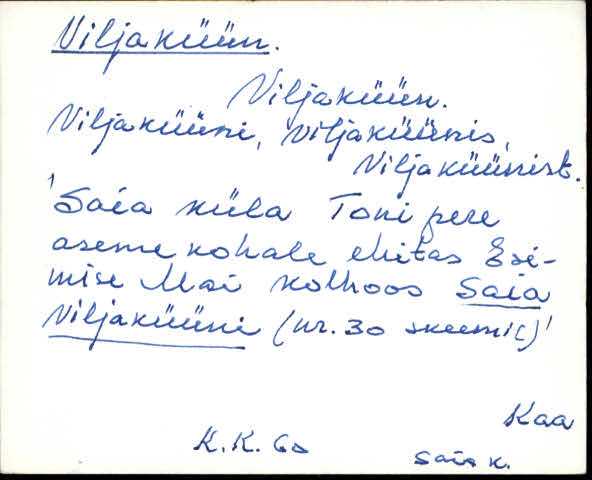 Viljaküün.
Viljaküün.
Viljaküüni, viljaküünis,
viljaküünist.
'Saia küla Toni pere
aseme kohale ehitas Esi-
mise Mai kolhoos Saia
viljaküüni (nr. 30 skeemil)'
Kaa
K.K. 60
Saia k.